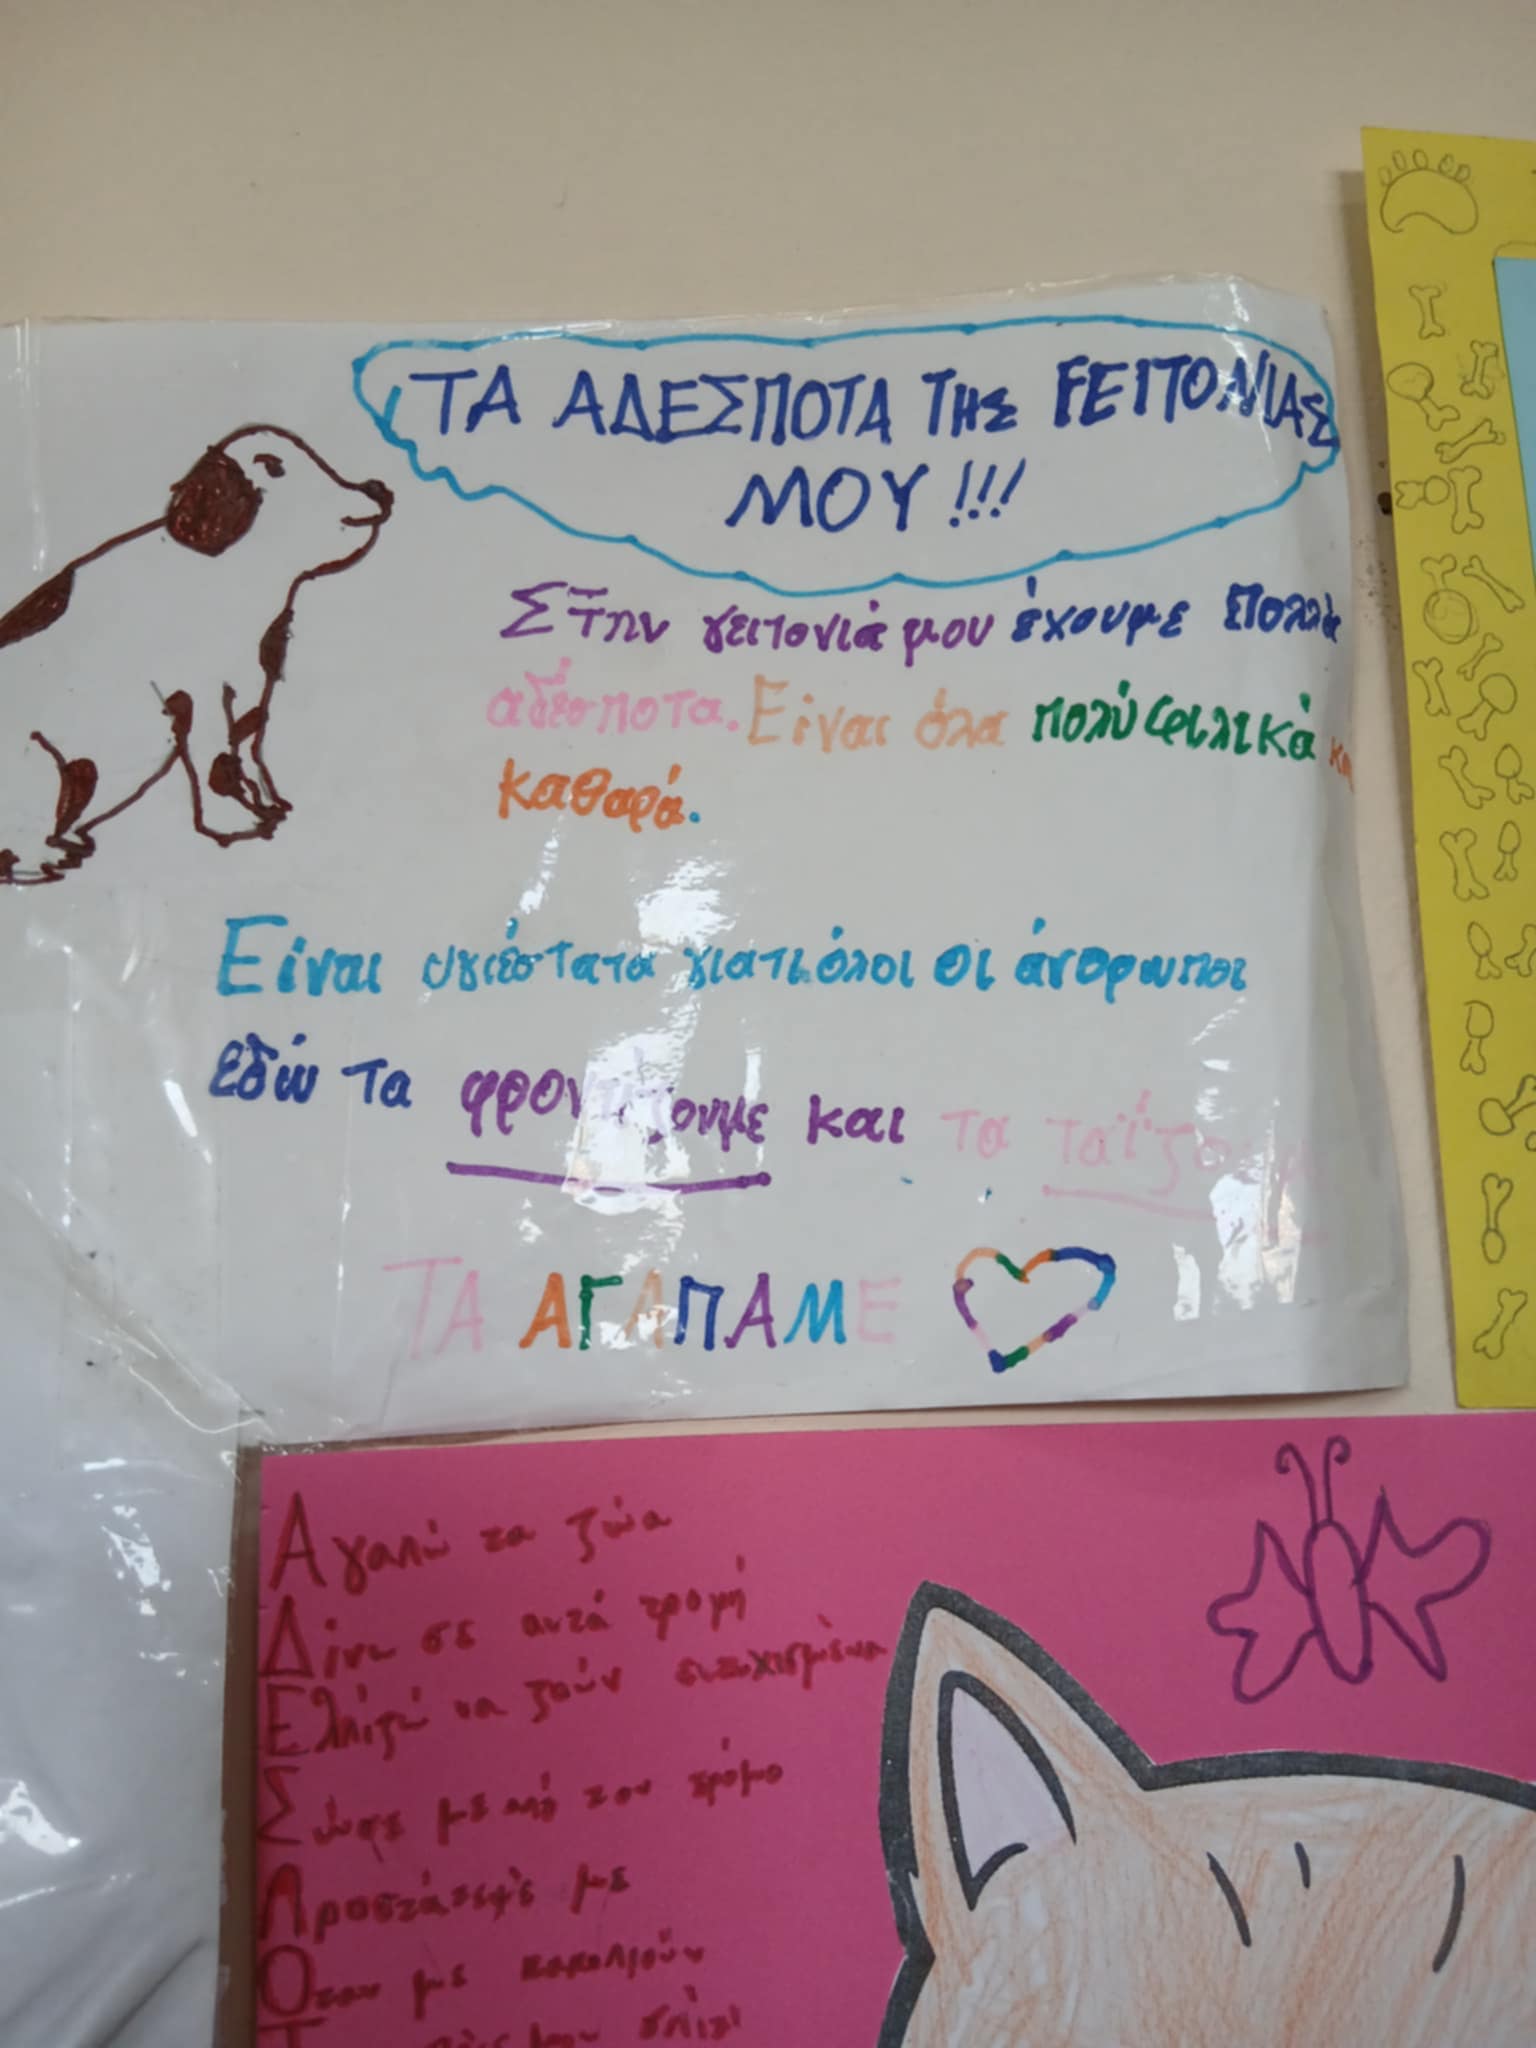 ΤΑ ΑΔΕΣΠΟΤΑ ΤΗΣ ΓΕΙΤΟΝΙΑΣ
ΜΟΥ!!!
Στην γειτονιά μου έχουμε πολλά
αδέσποτα. Είναι όλα πολύ φιλικά και
καθαρά.
Είναι υγιέστατα γιατι όλοι οι άνθρωποι
εδώ τα φροντίζουμε και τα ταΐζουμ
ΤΑ ΑΓΑΠΑΜΕ
Αγαπώ τα ζώα
Δίνω σε αυτά τροφή
Ελπίζω να ζούν ευτυχισμένα
Σώσε με από τον τρόμο
Προστάτεψέ με
Όταν με κακοποιούν
σπίτι